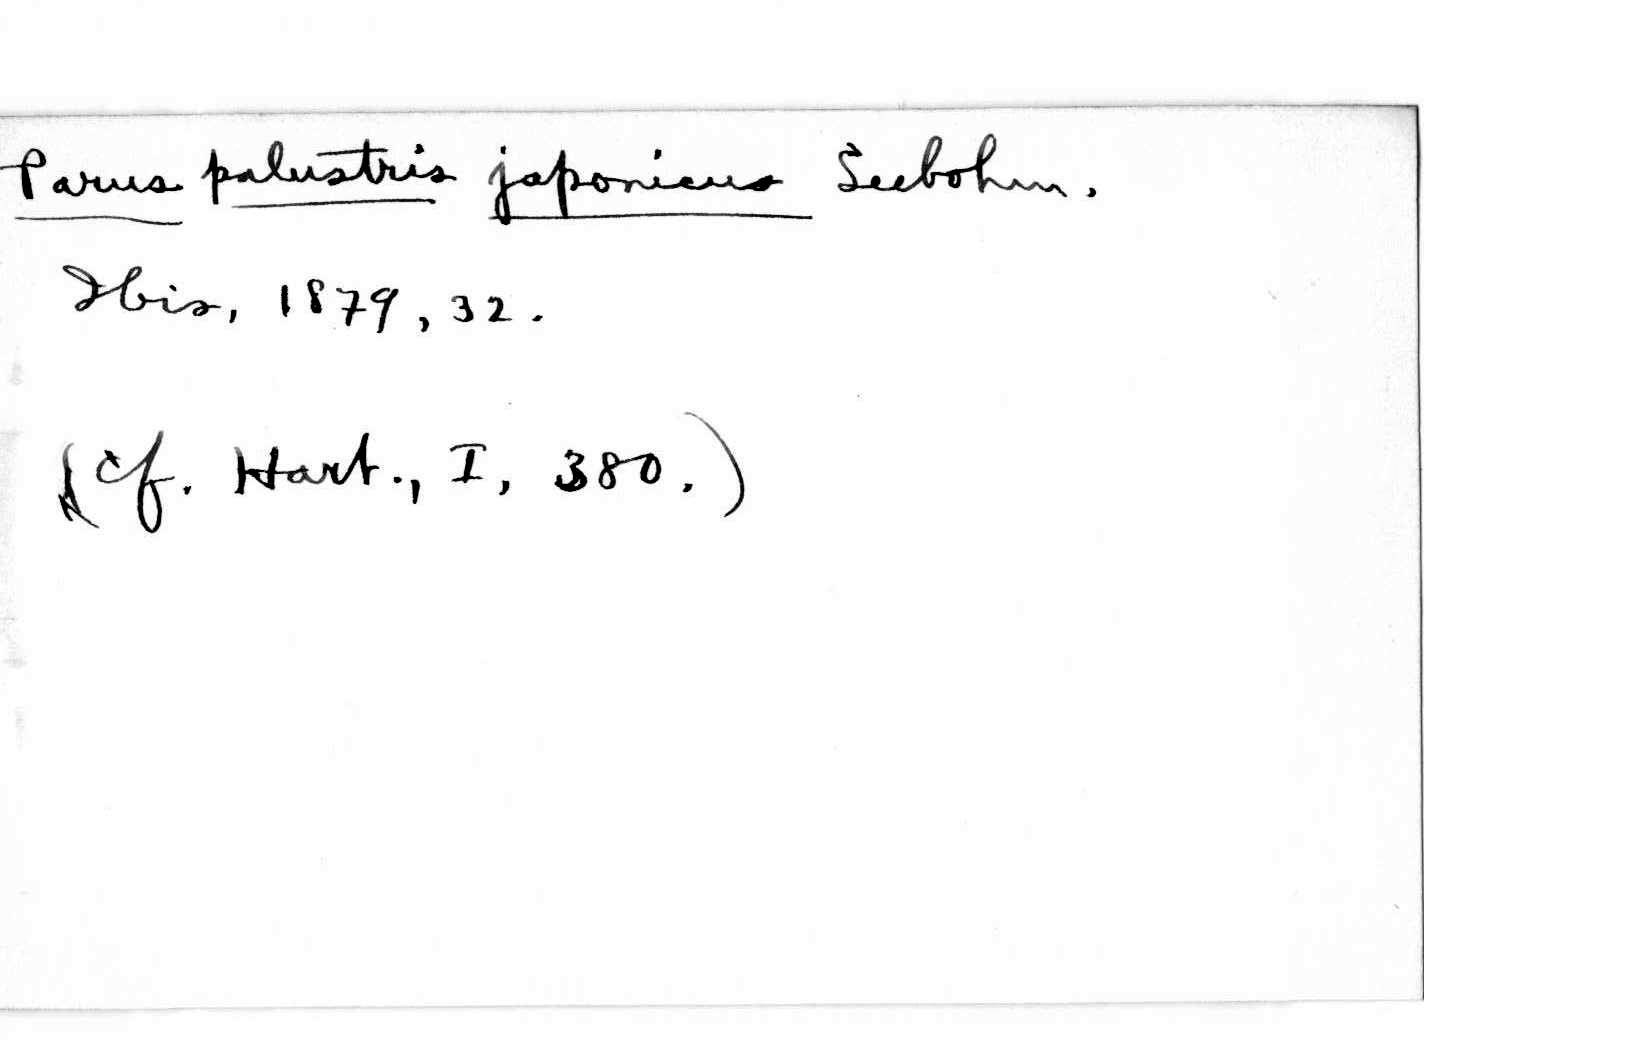 Parus palustris japonicus Seebohm.
Ibis, 1879, 32.
(Cf. Hart., I, 380.)